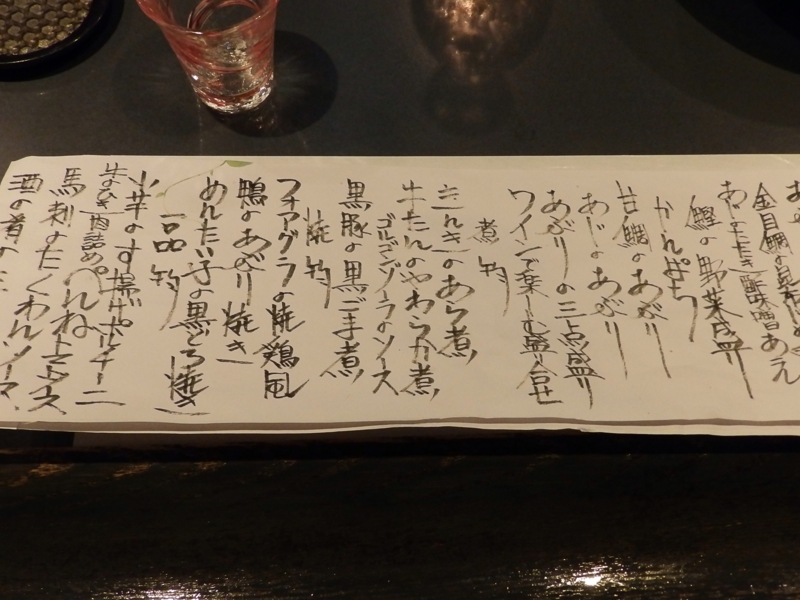 金目鯛の昆布じめ
あじたたき酢味噌あえ
鰹の野菜盛り
かんぱち
甘鯛のあぶり
あじのあぶり
あぶりの三点盛り
ワインで楽しむ盛り合せ
煮物
きんきのあら煮
牛たんのやわらか煮
ゴルゴンゾーラのソース
黒豚の黒ごま煮
焼物
フォアグラの焼鶏風
鴨のあぶり焼き
めんたい子の黒どろ焼き
一品物
小芋のす揚げポルチーニ
牛のひき肉詰め
馬刺のたくわんソース
酒の肴の